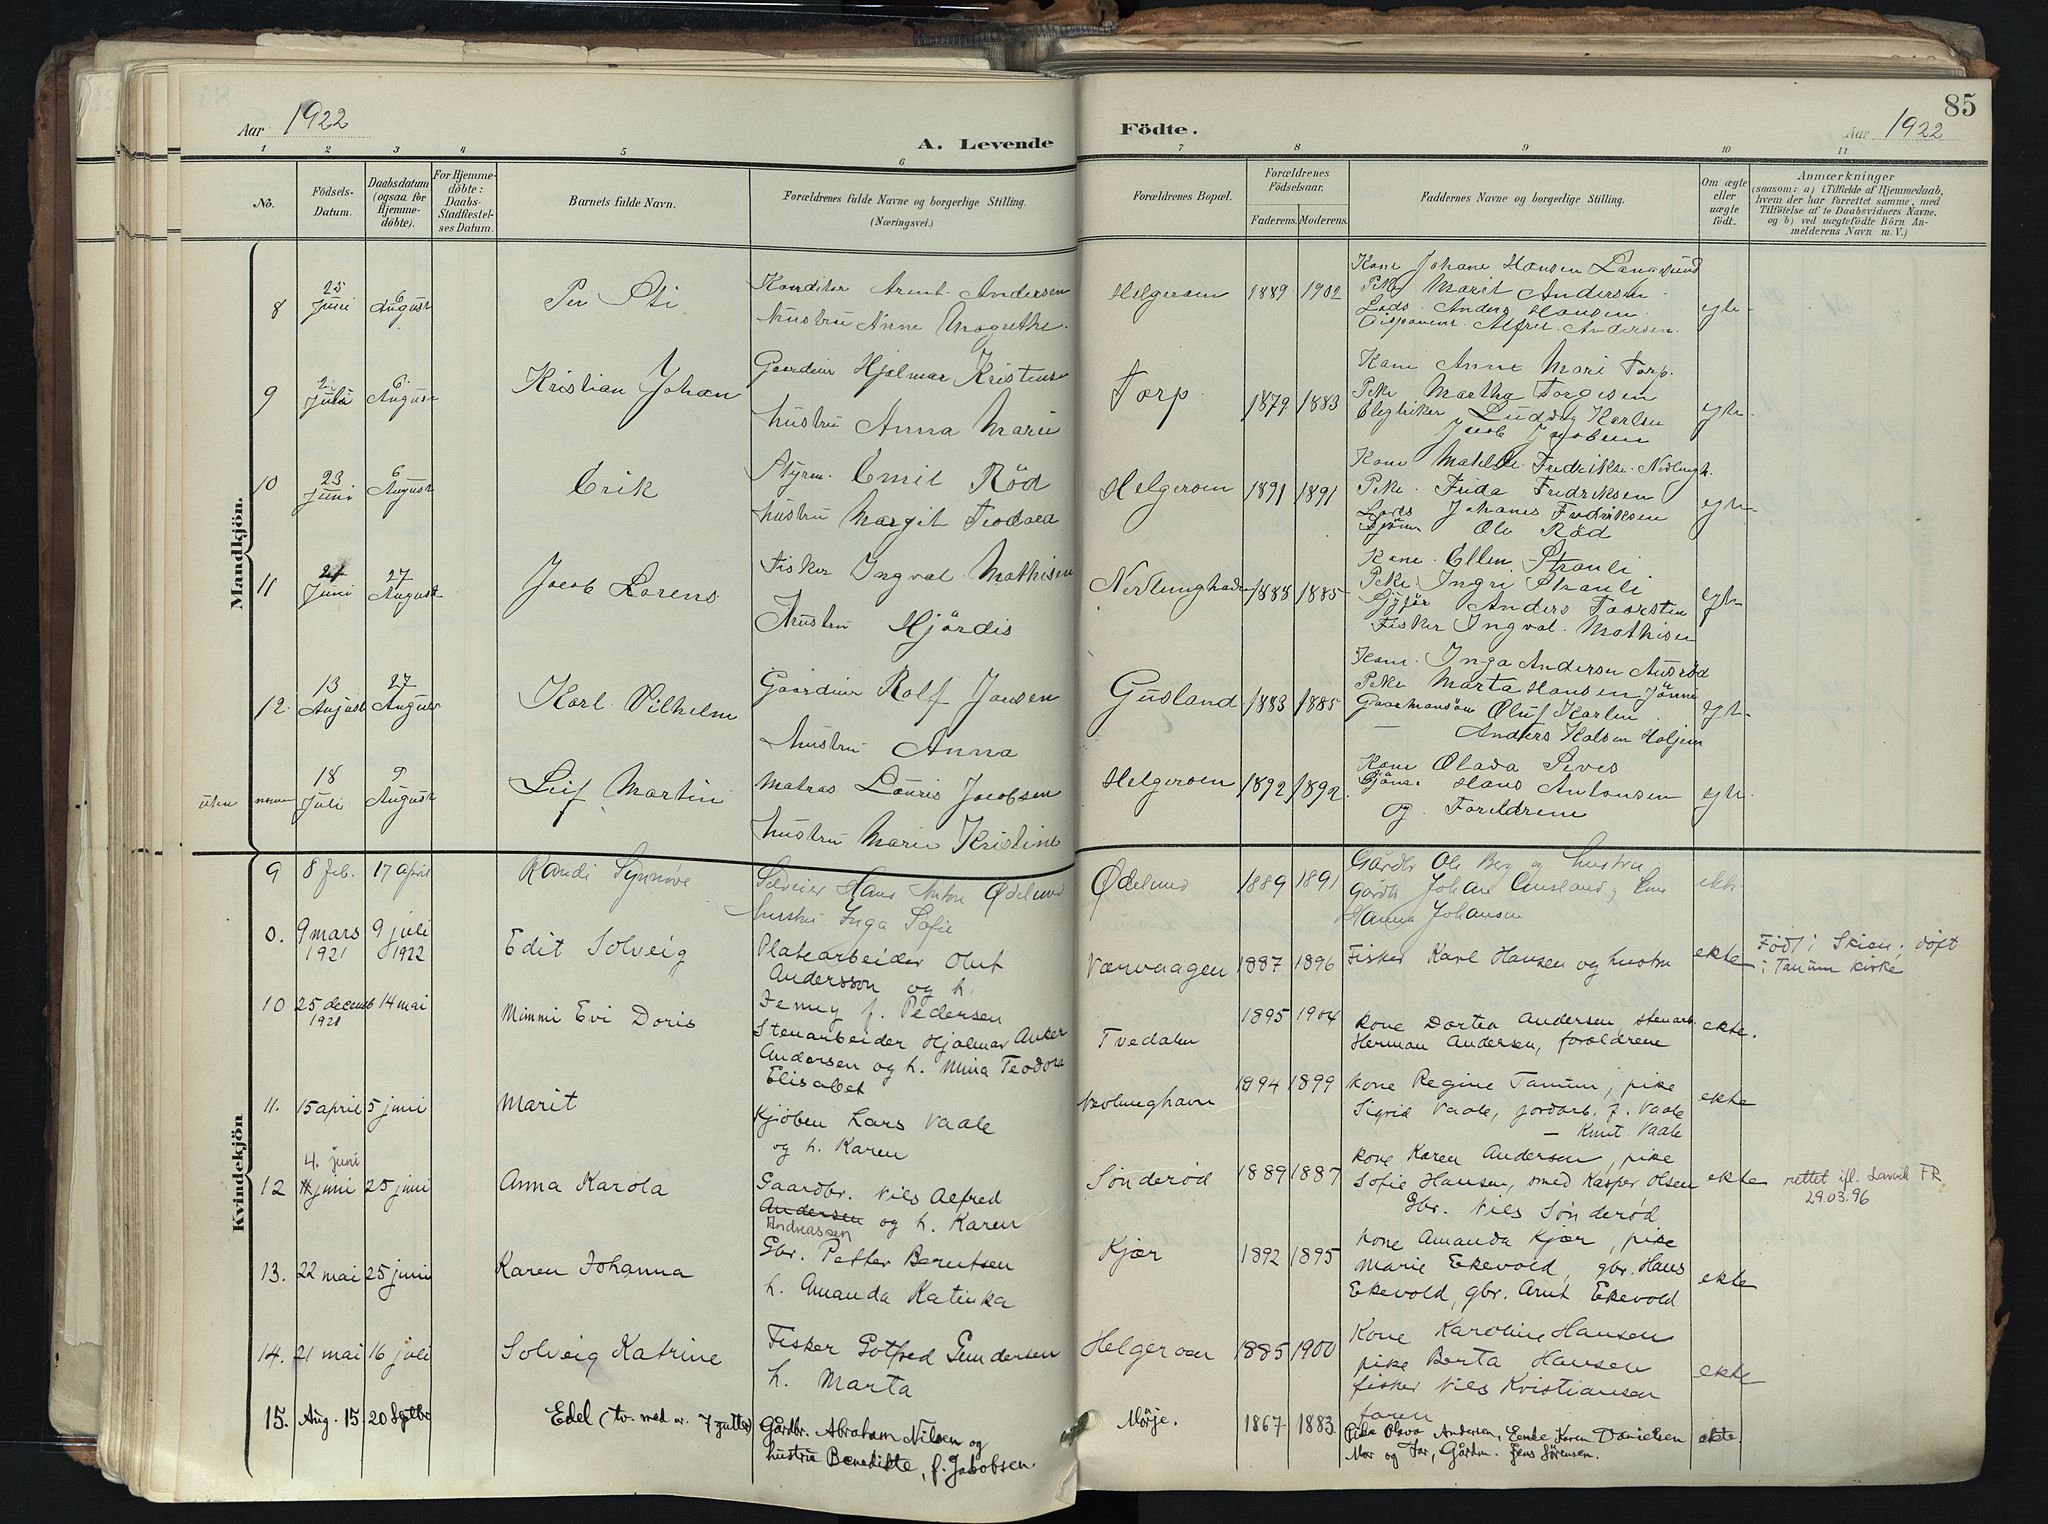 Aar 1922
A. Levende
Födte.
85
Aar 1922
1 2 3 4 5 6 7 8 9 10 11
No.
Födsels-
Datum.
Daabsdatum
(ogsaa for
Hjemme-
döbte).
For Hjemme-
döbte:
Daabs-
Stadfæstel-
ses Datum.
Barnets fulde Navn.
Forældrenes fulde Navne og borgerlige Stilling.
(Næringsvei.)
Forældrenes Bopæl.
Forældrenes
Födselsaar.
Faderens. Moderens.
Faddernes Navne og borgerlige Stilling.
Om ægte
eller
uægte
født.
Anmærkninger
(saasom: a) i Tilfælde af Hjemmedaab,
hvem der har forrettet samme, med
Tilföielse af to Daabsvidners Navne,
og b) ved uægtefödte Börn An-
melderens Navn m. V.)
Mandkjön.
8 25 Juni 6 August Per Sti
Konditor Arent Andersen
hustru Anne Margrethe
Helgeroen 1889 1902
Kone Johane Hansen Langesund
Pike Marit Andersen
Lods Anders Hansen
Disponent Alfret Andersen
egte
9 Juli 6 August Kristian Johan
Gaardeier Hjalmar Kristense
hustru Anna Marie
Torp 1879 1883
Kone Anne Mari Torp
Pike Martha Torgesen
Elegtriker Ludvig Karlsen
Jacob Jacobsen
egte
10 23 Juni 6 August Erik
Styrm. Emil Röd
hustru Margit Teodora
Helgeroen 1891 1891
Kone Matilde Fredrikse Nevlungh.
Pike Frida Fredriksen
Lods Johanes Fredriksen
Ole Röd
egte
11 21 Juni 27 August Jacob Lorens
Fisker Ingval Mathisen
Hustru Hjördis
Nevlunghavn 1888 1885
Kone Ellen Strauli
Pike Ingri Strauli
Anders Taarsten
Fisker Ingval Mathisen
egte
12 13 August 27 August Karl Vilhelm
Gaardeier Rolf Jansen
hustru Anna
Gusland 1883 1885
Kone Inga Andersen
Pike Marta Hansen
Oluf Karlsen
Anders
egte
uten nummer 18 Juli 9 August Leif Martin
Matros Louris Jacobsen
hustru Marie Kristine
Helgeroen 1892 1892
Kone Olava
Hans Antonsen
og Foreldrene
egte
Kvindekjön
9 8 feb. 17 april Randi Synnøve
Hans Anton Ødelund
hustru Inga Sofie
Ødelund 1889 1891
Gårdbr Ole Berg og hustru
Gårdb Johan Gusland og kone
Hanna Johansen
ekte
0. 9 mars 1921 9 juli 1922 Edit Solveig
Platearbeider Oluf
Andersson og h.
Jenny f. Pedersen
Værvaagen 1887 1896
Fisker Karl Hansen og hustru
ekte
Født i Skien; døpt
i Tanum kirke
10 25 decemb 1921 14 mai Mimmi Evi Doris
Stenarbeider Hjalmar Anker
Andersen og h. Mina Teodora
Elisabet
Tvedalen 1895 1904
kone Dortea Andersen, stenarb.
Herman Andersen, foreldrene
ekte.
11. 15 april 5 juni Marit
Kjøbm Lars Vaale
og h. Karen
Nevlunghavn 1894 1899
kone Regine Tanum, pike
Sigrid Vaale, jordarb. J. Vaale
— Knut Vaale
ekte
4. juni
12 11 juni 25 juni Anna Karola
Gaardbr. Nils Alfred
Andersen og h. Karen
Andreassen
Sønderød 1889 1887
kone Karen Andersen, pike
Sofie Hansen, smed Kasper Olsen
Gbr. Nils Sønderød
ekte
rettet ifl. Larvik FR
29.03.96
13. 22 mai 25 juni Karen Johanna
Gbr. Petter Berntsen
h. Amanda Katinka
Kjær 1892 1895
kone Amanda Kjær, pike
Marie Ekevold, gbr. Hans
Ekevold, gbr. Arnt Ekevold
ekte
14. 21 mai 16 juli Solveig Katrine
Fisker Gotfred Gundersen
h. Marta
Helgeroen 1885 1900
Kone Karoline Hansen
pike Berta Hansen
fisker Nils Kristiansen
faren
ekte
15. Aug. 15 20 Septbr Edel (tv. med nr. 7 gutter)
Gårdbr. Abraham Nilsen og
hustru Benedikte, f. Jakobsen.
Mørje. 1867 1883
Pike Olava Andersen, Enke Karen Danielsen
Mor og Far, Gårdm. Jens Sørensen.
ekte.